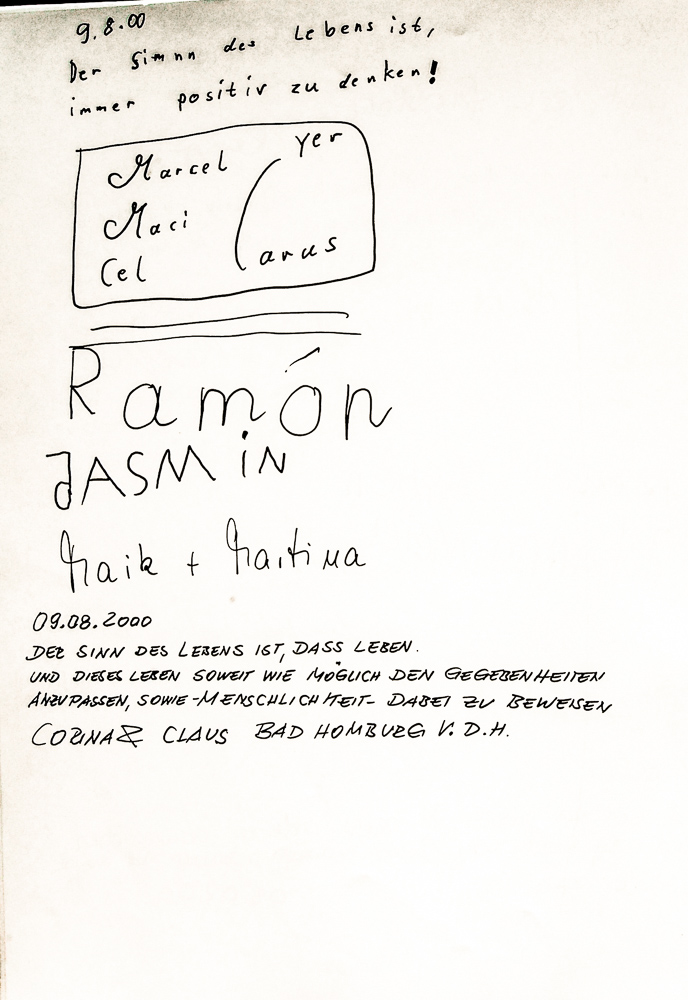 9.8.00
Der Simnn des Lebens ist,
immer positiv zu denken!
Marcel yer
Maci
Cel arus
Ramón
JASMiN
Maik + Martina
09.08.2000
DER SINN DES LEBENS IST, DASS LEBEN.
UND DIESES LEBEN SOWEIT WIE MÖGLICH DEN GEGEBENHEITEN
ANZUPASSEN, SOWIE -MENSCHLICHKEIT- DABEI ZU BEWEISEN
CORINA & CLAUS BAD HOMBURG V. D. H.